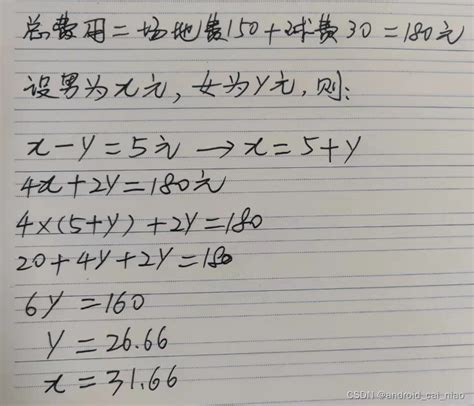 总费用=场地费150+球费30=180元
设男为x元,女为Y元,则:
x-Y=5元→x=5+Y
4x+2Y=180元
4×(5+Y)+2Y=180
20+4Y+2Y=180
6Y=160
Y=26.66
x=31.66
CSDN @android_cai_niao